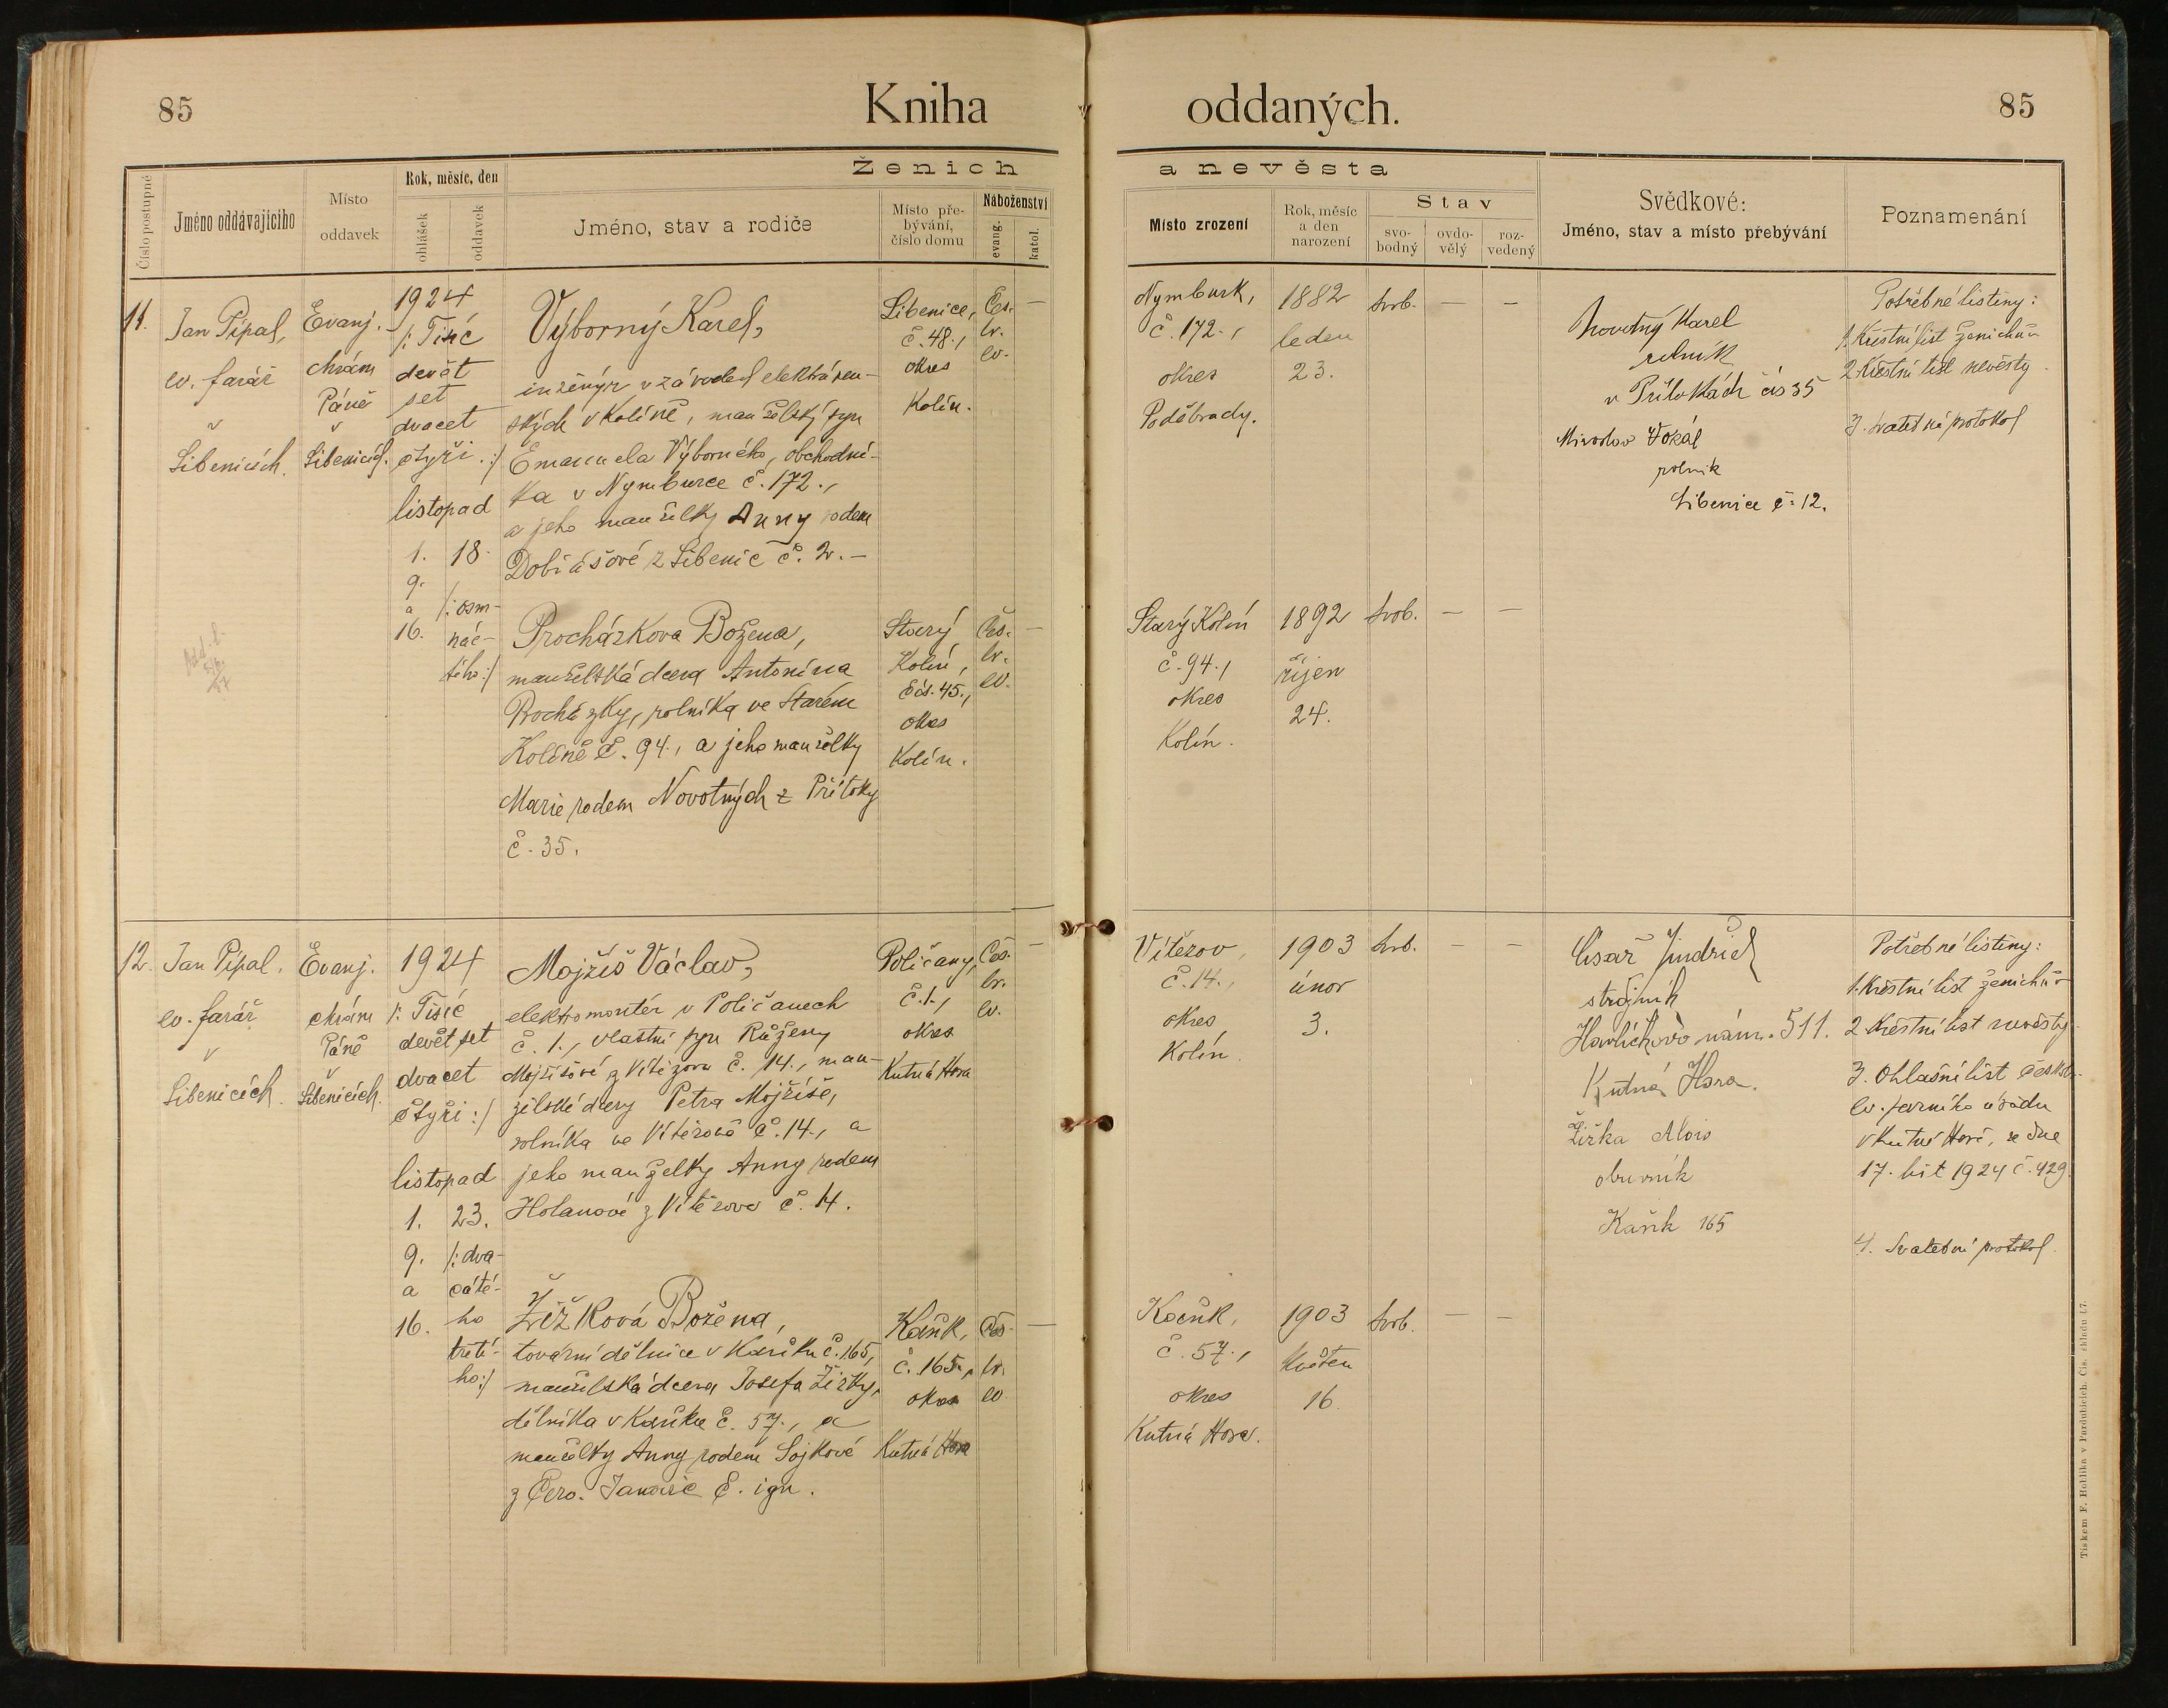 85
Kniha oddaných.
85
Ženich a nevěsta
Číslo postupné
Jméno oddávajícího
Místo oddavek
Rok, měsíc, den
ohlášek
oddavek
Jméno, stav a rodiče
Místo pře-
bývání,
číslo domu
Náboženství
evang.
katol.
Místo zrození
Rok, měsíc
a den
narození
Stav
svo-
bodný
ovdo-
vělý
roz-
vedený
Svědkové:
Jméno, stav a místo přebývání
Poznamenání
11.
Jan Pípal,
ev. farář
v
Libenicích.
Evanj.
chrám
Páně
v
Libenicích.
1924
/: Tisíc
devět
set
dvacet
čtyři :/
listopad
1.
9.
a
16.
18.
/: osm-
nác-
tého :/
Výborný Karel,
inženýr v závodech elektráren-
ských v Kolíně, manželský syn
Emanuela Výborného, obchodní-
ka v Nymburce č. 172.,
a jeho manželky Anny rodem
Dobiášové z Libenic č. 2. –
Libenice,
č. 48.,
okres
Kolín.
Čes.
br.
ev.
—
Nymburk,
č. 172.,
okres
Poděbrady.
1882
leden
23.
svob.
—
—
Novotný Karel
rolník
v Přítokách čís 35
Miroslav Vokál
rolník
Libenice č. 12.
Potřebné listiny:
1. Křestní list ženichův
2. Křestní list nevěsty.
3. Svatební protokol
Procházkova Božena,
manželská dcera Antonína
Procházky, rolníka ve Starém
Kolíně č. 94., a jeho manželky
Marie rodem Novotných z Přítoky
č. 35.
Starý
Kolín,
čís. 45.,
okres
Kolín.
Čes.
br.
ev.
—
Starý Kolín
č. 94.,
okres
Kolín.
1892
říjen
24.
svob.
—
—
12.
Jan Pípal.
ev. farář
v
Libenicích.
Evanj.
chrám
Páně
v
Libenicích.
1924
/: Tisíc
devět set
dvacet
čtyři :/
listopad
1.
9.
a
16.
23.
/: dva-
cáté-
ho
třetí-
ho :/
Mojžíš Václav,
elektromontér v Poličanech
č. 1., vlastní syn Růženy
Mojžíšové z Vítězova č. 14., man-
želské dcery Petra Mojžíše,
rolníka ve Vítězově č. 14., a
jeho manželky Anny rodem
Holanové z Vítězova č. 14.
Poličany,
č. 1.,
okres
Kutná Hora
Čes.
br.
ev.
—
Vítězov,
č. 14.,
okres
Kolín.
1903
únor
3.
svob.
—
—
Císař Jindřich
strojník
Havlíčkovo nám. 511.
Kutná Hora.
Žižka Alois
obuvník
Kaňk 165
Potřebné listiny:
1. Křestní list ženichův
2. Křestní list nevěsty
3. Ohlašní list českobr.
ev. farního úřadu
v Kutné Hoře, ze dne
17. list 1924 č. 429.
4. Svatební protokol.
Žižková Božena,
tovární dělnice v Kaňku č. 165,
manželská dcera Josefa Žižky,
dělníka v Kaňku č. 57., a
manželky Anny rodem Sojkové
z Červ. Janovic č. ign.
Kaňk,
č. 165.,
okres
Kutná Hora
Čes.
br.
ev.
—
Kaňk,
č. 57.,
okres
Kutná Hora.
1903
květen
16.
svob.
—
—
Tiskem F. Hoblíka v Pardubicích. Čís. skladu 17.